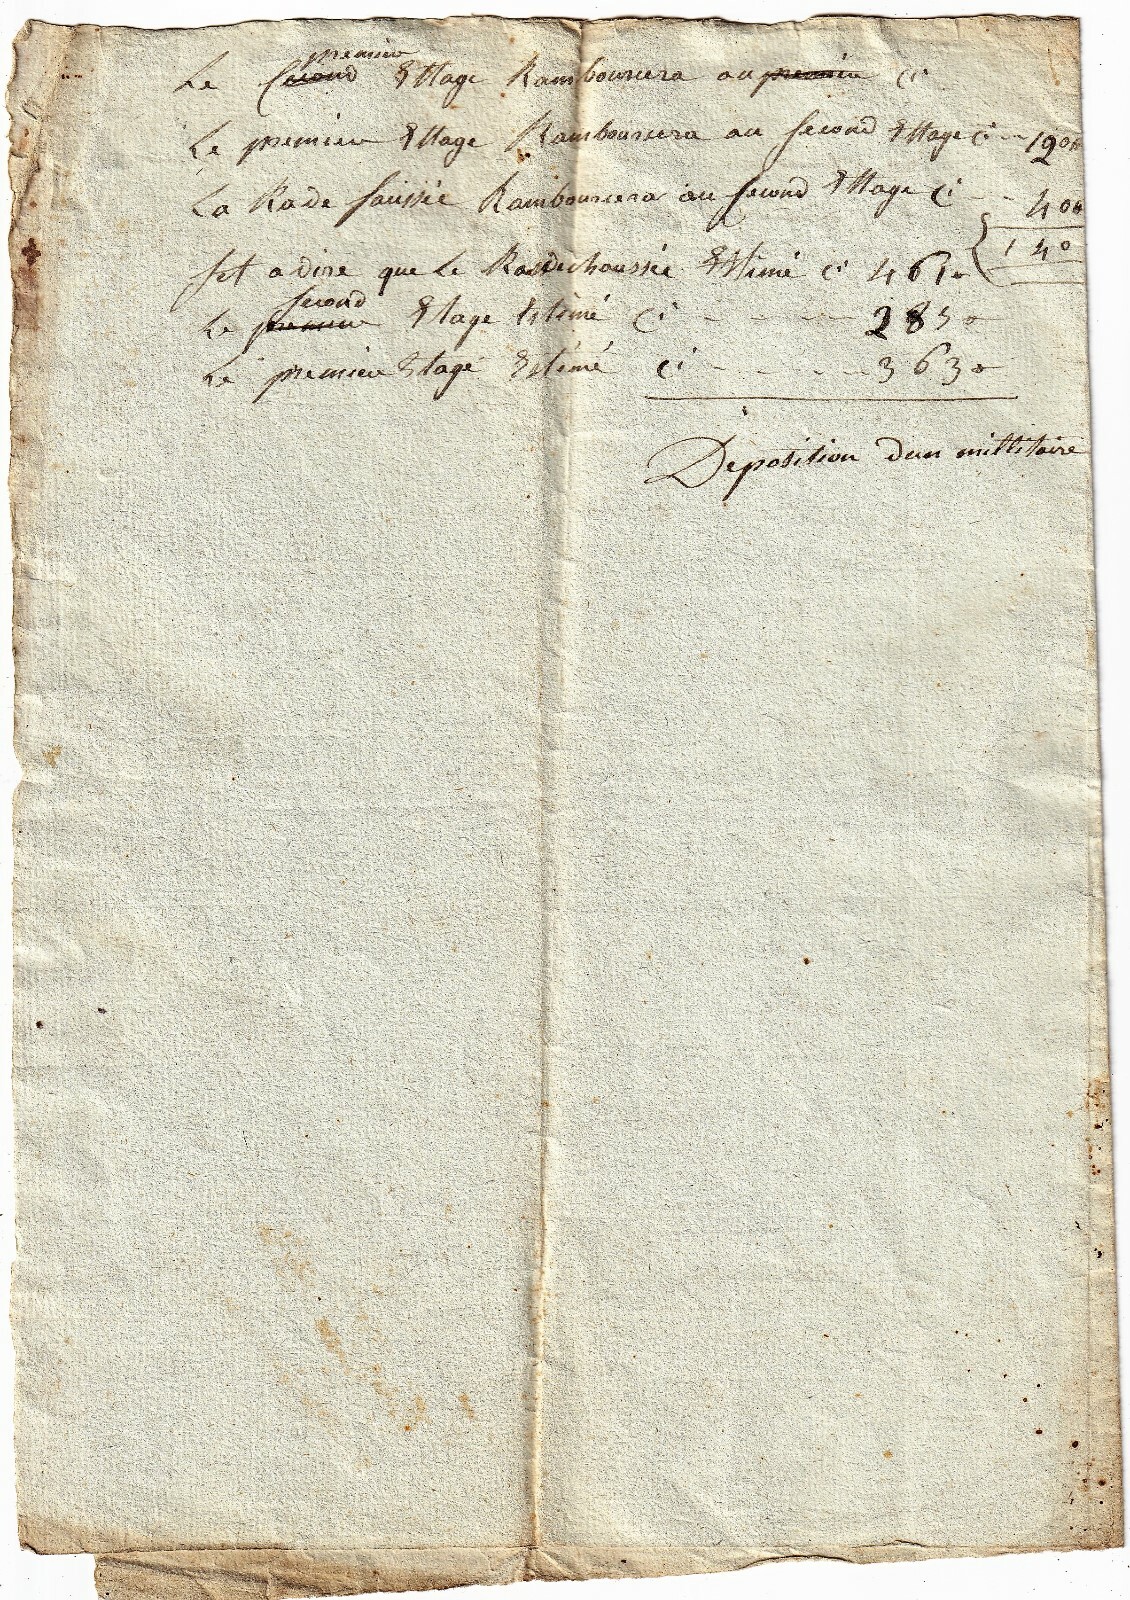 premier
Le second Ettage Ramboursera au premier ci
Le premier Ettage Ramboursera au second Ettage ci -- 120#
La Rade saussée Ramboursera au second Ettage ci -- 40#
140
set a dire que Le Raisdechaussée Esttimé ci 4610
second
Le premier Etage Estimé ci - - - - - 2850
Le premier Etage Estimé ci - - - - - 3630
Deposition dun millitaire